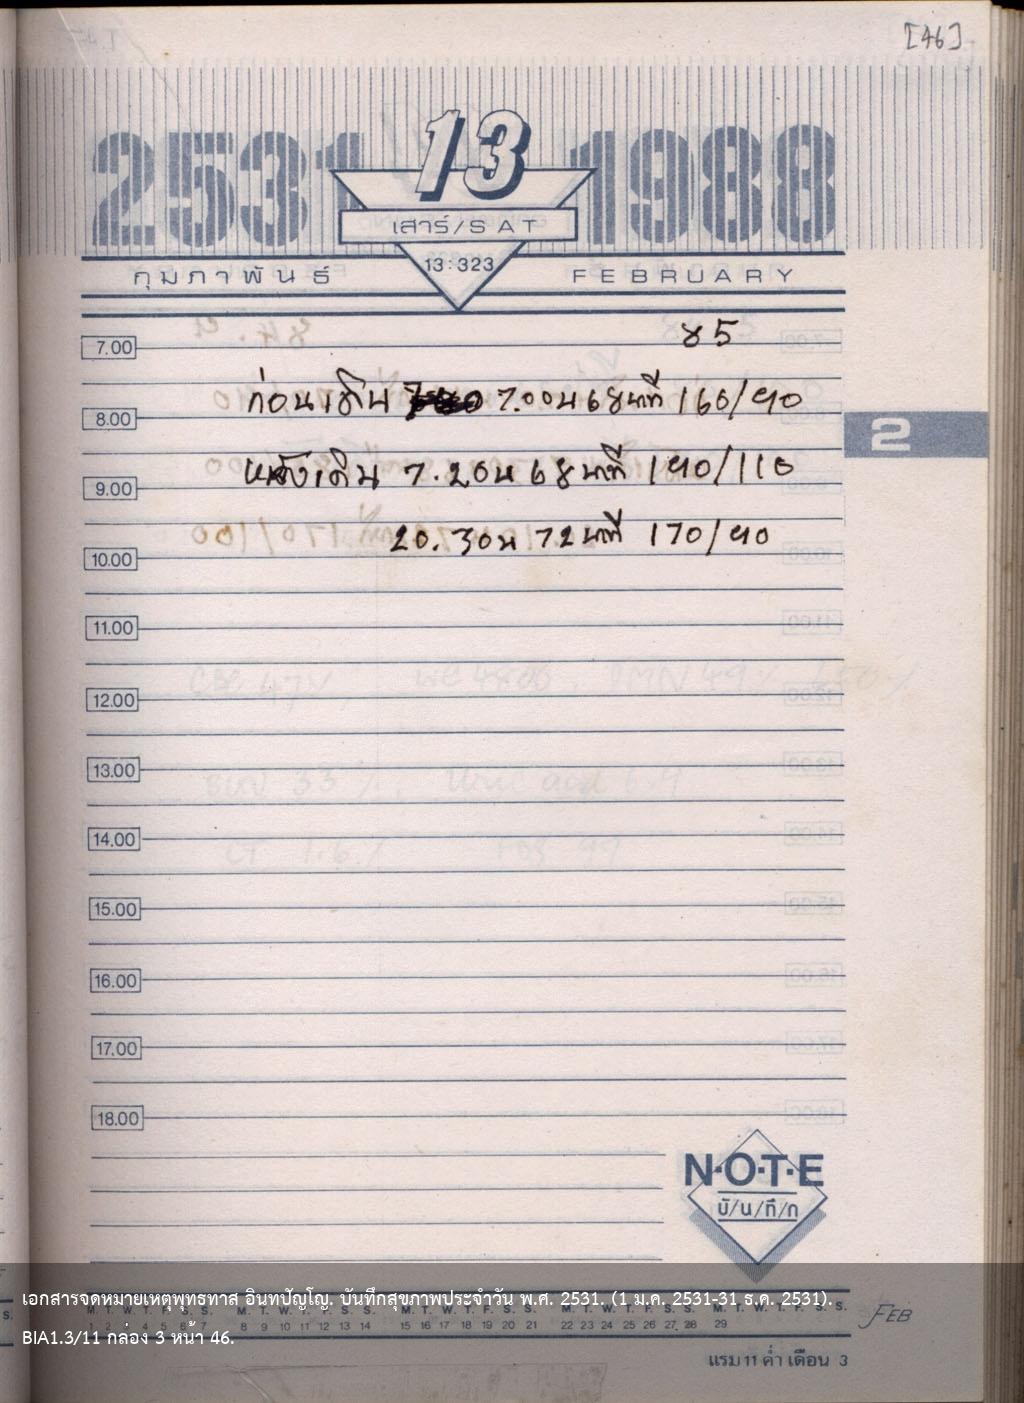 [46]
2531 13 1988
เสาร์/SAT
13:323
กุมภาพันธ์ FEBRUARY
7.00 85
ก่อนเดิน 7.00น 68 นาที 160/90
8.00
2
หลังเดิน 7.20น 68 นาที 190/110
9.00
20.30น 72 นาที 170/90
10.00
11.00
12.00
13.00
14.00
15.00
16.00
17.00
18.00
N·O·T·E
บั/น/ทึ/ก
เอกสารจดหมายเหตุพุทธทาส อินทปัญโญ. บันทึกสุขภาพประจำวัน พ.ศ. 2531. (1 ม.ค. 2531-31 ธ.ค. 2531).
M. T. W. T. F. S. S. M. T. W. T. F. S. S. M. T. W. T. F. S. S. M. T. W. T. F. S. S. M. T. W. T. F. S. S.
1 2 3 4 5 6 7 8 9 10 11 12 13 14 15 16 17 18 19 20 21 22 23 24 25 26 27 28 29
FEB
BIA1.3/11 กล่อง 3 หน้า 46.
แรม 11 ค่ำ เดือน 3